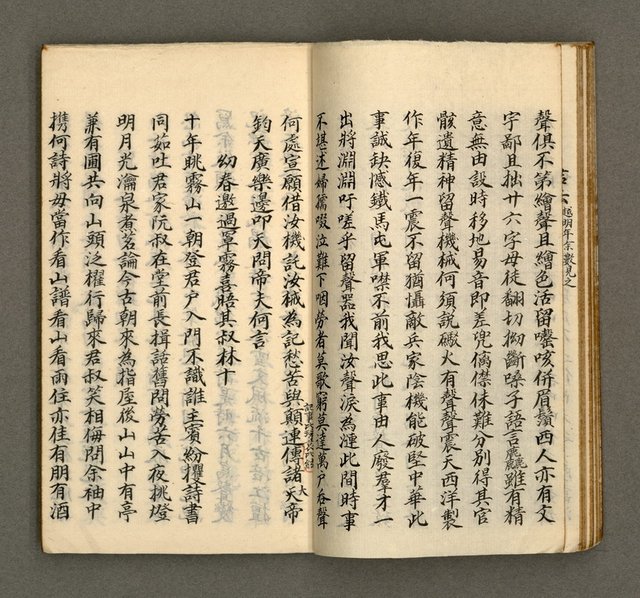 聲俱不第繪聲且繪色活留嚶咳併眉鬚西人亦有文
字鄙且拙廿六字母徒翻切拗斷嗓子語言麤雖有精
意無由設時移地易音即差兜㒧僸休難分別得其官
骸遺精神留聲機械何須說礮火有聲聲震天西洋製
作年復年一震不留猶懾敵兵家陰機能破堅中華此
事誠缺憾鐵馬屯軍噤不前我思此事由人廢羣才一
出將淵淵吁嗟乎留聲器我聞汝聲淚為漣此間時事
不堪述婦孺啜泣難下咽勞者莫歌窮莫達萬戶吞聲
何處宣願借汝機託汝械為記愁苦與顛連傳諸天帝
大
鈞天廣樂邊叩天問帝夫何言
幼春邀過罩霧喜晤其叔林十
十年眺霧山一朝登君戶入門不識誰主賓紛攤詩書
同茹吐君家阮叔在堂前長揖話舊問勞苦入夜挑燈
明月光瀹泉煮茗論今古朝來為指屋後山山中有亭
兼有圃共向山頭泛櫂行歸來君叔笑相侮問余袖中
攜何詩將毋當作看山譜看山看雨住亦佳有朋有酒